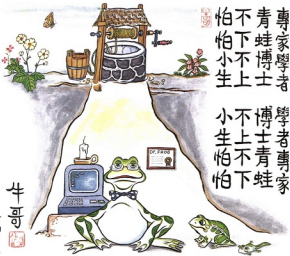 專家學者
青蛙博士
不下不上
怕怕小生
學者專家
博士青蛙
不上不下
小生怕怕
DR. FROG
牛哥